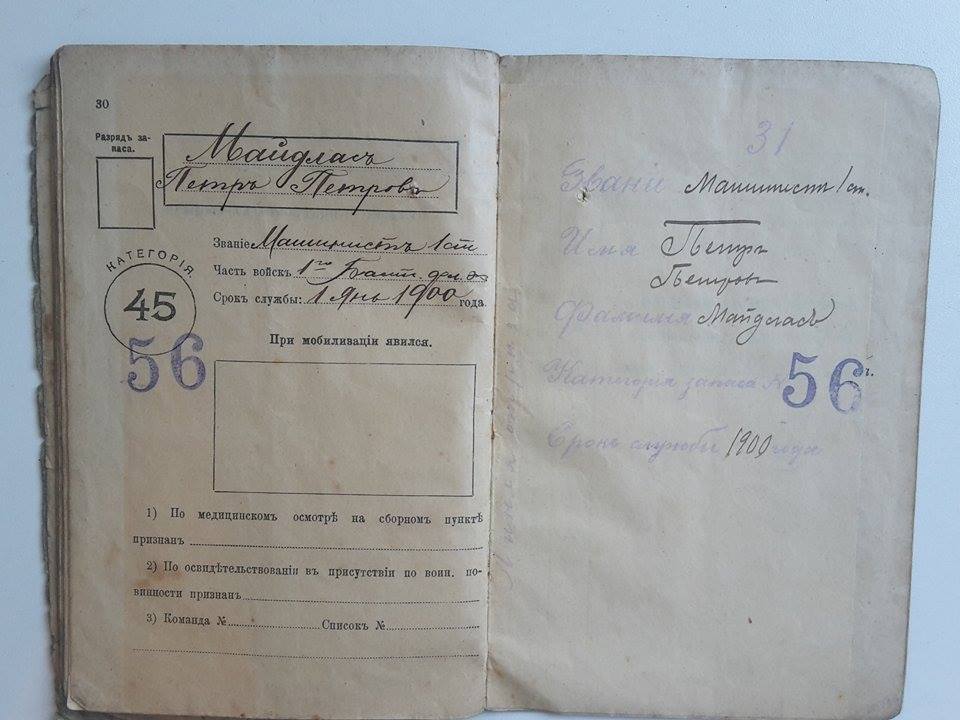 30
Разрядъ за-
паса.
Майдласъ
Петръ Петровъ
КАТЕГОРІЯ.
45
56
Званіе Машинистъ 1 ст
Часть войскъ 1го
Срокъ службы: 1 Янв 1900 года.
При мобиливаціи явился.
1) По медицинскомъ осмотрѣ на сборномъ пунктѣ
признан
2) По освидѣтельствованіи въ присутствіи по воин. по-
винности признан
3) Команда № Списокъ №
31
Званіе Машинистъ 1 ст.
Имя Петръ
Петровъ
Фамилія Майдласъ
Категорія запаса № 56 г.
Срокъ службы 1900 года
Линія отрѣза